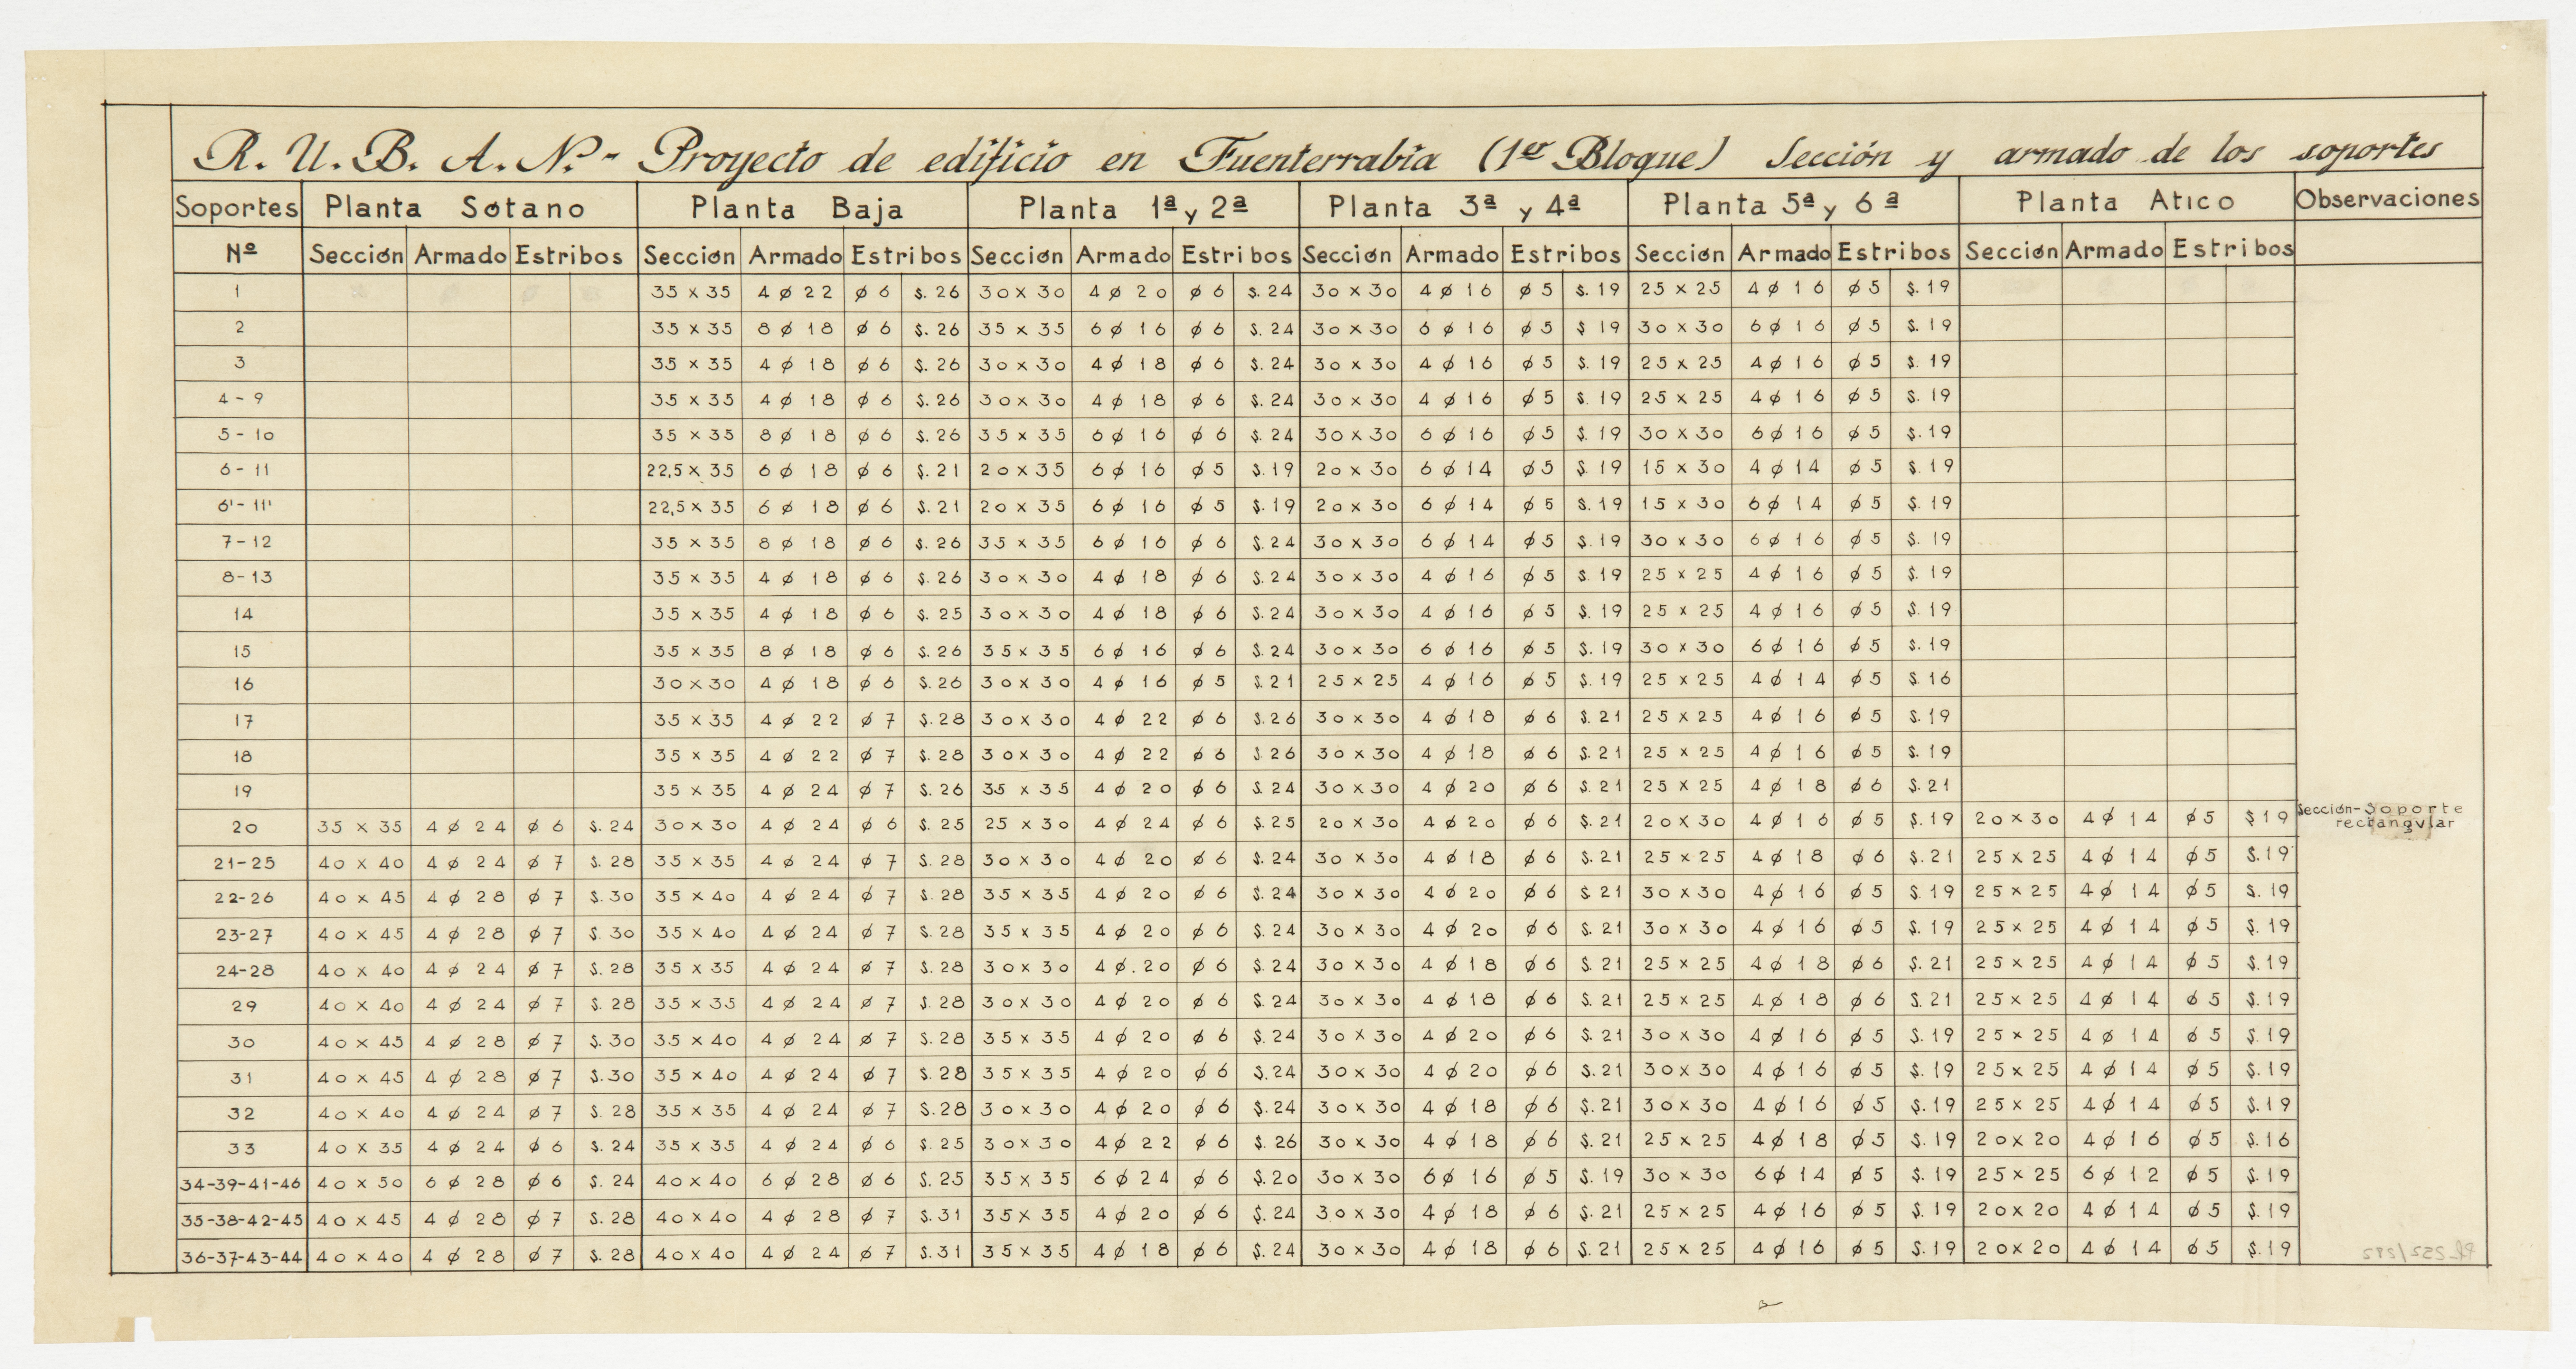 R. U. B. A. N.- Proyecto de edificio en Fuenterrabia (1er Bloque) Sección y armado de los soportes
Soportes Planta Sótano Planta Baja Planta 1ª y 2ª Planta 3ª y 4ª Planta 5ª y 6ª Planta Atico Observaciones
Nº Sección Armado Estribos Sección Armado Estribos Sección Armado Estribos Sección Armado Estribos Sección Armado Estribos Sección Armado Estribos
1 35 x 35 4 ø 22 ø 6 s. 26 30 x 30 4 ø 20 ø 6 s. 24 30 x 30 4 ø 16 ø 5 s. 19 25 x 25 4 ø 16 ø 5 s. 19
2 35 x 35 8 ø 18 ø 6 s. 26 35 x 35 6 ø 16 ø 6 s. 24 30 x 30 6 ø 16 ø 5 s 19 30 x 30 6 ø 16 ø 5 s. 19
3 35 x 35 4 ø 18 ø 6 s. 26 30 x 30 4 ø 18 ø 6 s. 24 30 x 30 4 ø 16 ø 5 s. 19 25 x 25 4 ø 16 ø 5 s. 19
4 - 9 35 x 35 4 ø 18 ø 6 s. 26 30 x 30 4 ø 18 ø 6 s. 24 30 x 30 4 ø 16 ø 5 s. 19 25 x 25 4 ø 16 ø 5 s. 19
5 - 10 35 x 35 8 ø 18 ø 6 s. 26 35 x 35 6 ø 16 ø 6 s. 24 30 x 30 6 ø 16 ø 5 s. 19 30 x 30 6 ø 16 ø 5 s. 19
6 - 11 22,5 x 35 6 ø 18 ø 6 s. 21 20 x 35 6 ø 16 ø 5 s. 19 20 x 30 6 ø 14 ø 5 s. 19 15 x 30 4 ø 14 ø 5 s. 19
6' - 11' 22,5 x 35 6 ø 18 ø 6 s. 21 20 x 35 6 ø 16 ø 5 s. 19 20 x 30 6 ø 14 ø 5 s. 19 15 x 30 6 ø 14 ø 5 s. 19
7 - 12 35 x 35 8 ø 18 ø 6 s. 26 35 x 35 6 ø 16 ø 6 s. 24 30 x 30 6 ø 14 ø 5 s. 19 30 x 30 6 ø 16 ø 5 s. 19
8 - 13 35 x 35 4 ø 18 ø 6 s. 26 30 x 30 4 ø 18 ø 6 s. 24 30 x 30 4 ø 16 ø 5 s. 19 25 x 25 4 ø 16 ø 5 s. 19
14 35 x 35 4 ø 18 ø 6 s. 25 30 x 30 4 ø 18 ø 6 s. 24 30 x 30 4 ø 16 ø 5 s. 19 25 x 25 4 ø 16 ø 5 s. 19
15 35 x 35 8 ø 18 ø 6 s. 26 35 x 35 6 ø 16 ø 6 s. 24 30 x 30 6 ø 16 ø 5 s. 19 30 x 30 6 ø 16 ø 5 s. 19
16 30 x 30 4 ø 18 ø 6 s. 26 30 x 30 4 ø 16 ø 5 s. 21 25 x 25 4 ø 16 ø 5 s. 19 25 x 25 4 ø 14 ø 5 s. 16
17 35 x 35 4 ø 22 ø 7 s. 28 30 x 30 4 ø 22 ø 6 s. 26 30 x 30 4 ø 18 ø 6 s. 21 25 x 25 4 ø 16 ø 5 s. 19
18 35 x 35 4 ø 22 ø 7 s. 28 30 x 30 4 ø 22 ø 6 s. 26 30 x 30 4 ø 18 ø 6 s. 21 25 x 25 4 ø 16 ø 5 s. 19
19 35 x 35 4 ø 24 ø 7 s. 26 35 x 35 4 ø 20 ø 6 s 24 30 x 30 4 ø 20 ø 6 s. 21 25 x 25 4 ø 18 ø 6 s. 21
20 35 x 35 4 ø 24 ø 6 s. 24 30 x 30 4 ø 24 ø 6 s. 25 25 x 30 4 ø 24 ø 6 s. 25 20 x 30 4 ø 20 ø 6 s. 21 20 x 30 4 ø 16 ø 5 s. 19 20 x 30 4 ø 14 ø 5 s 19 Sección-Soporte
rectangular
21-25 40 x 40 4 ø 24 ø 7 s. 28 35 x 35 4 ø 24 ø 7 s. 28 30 x 30 4 ø 20 ø 6 s. 24 30 x 30 4 ø 18 ø 6 s. 21 25 x 25 4 ø 18 ø 6 s. 21 25 x 25 4 ø 14 ø 5 s. 19
22-26 40 x 45 4 ø 28 ø 7 s. 30 35 x 40 4 ø 24 ø 7 s. 28 35 x 35 4 ø 20 ø 6 s. 24 30 x 30 4 ø 20 ø 6 s 21 30 x 30 4 ø 16 ø 5 s. 19 25 x 25 4 ø 14 ø 5 s. 19
23-27 40 x 45 4 ø 28 ø 7 s. 30 35 x 40 4 ø 24 ø 7 s. 28 35 x 35 4 ø 20 ø 6 s. 24 30 x 30 4 ø 20 ø 6 s. 21 30 x 30 4 ø 16 ø 5 s. 19 25 x 25 4 ø 14 ø 5 s. 19
24-28 40 x 40 4 ø 24 ø 7 s. 28 35 x 35 4 ø 24 ø 7 s. 28 30 x 30 4 ø. 20 ø 6 s. 24 30 x 30 4 ø 18 ø 6 s. 21 25 x 25 4 ø 18 ø 6 s. 21 25 x 25 4 ø 14 ø 5 s. 19
29 40 x 40 4 ø 24 ø 7 s. 28 35 x 35 4 ø 24 ø 7 s. 28 30 x 30 4 ø 20 ø 6 s. 24 30 x 30 4 ø 18 ø 6 s. 21 25 x 25 4 ø 18 ø 6 s. 21 25 x 25 4 ø 14 ø 5 s. 19
30 40 x 45 4 ø 28 ø 7 s. 30 35 x 40 4 ø 24 ø 7 s. 28 35 x 35 4 ø 20 ø 6 s. 24 30 x 30 4 ø 20 ø 6 s. 21 30 x 30 4 ø 16 ø 5 s. 19 25 x 25 4 ø 14 ø 5 s. 19
31 40 x 45 4 ø 28 ø 7 s. 30 35 x 40 4 ø 24 ø 7 s. 28 35 x 35 4 ø 20 ø 6 s. 24 30 x 30 4 ø 20 ø 6 s. 21 30 x 30 4 ø 16 ø 5 s. 19 25 x 25 4 ø 14 ø 5 s. 19
32 40 x 40 4 ø 24 ø 7 s. 28 35 x 35 4 ø 24 ø 7 s. 28 30 x 30 4 ø 20 ø 6 s. 24 30 x 30 4 ø 18 ø 6 s. 21 30 x 30 4 ø 16 ø 5 s. 19 25 x 25 4 ø 14 ø 5 s. 19
33 40 x 35 4 ø 24 ø 6 s. 24 35 x 35 4 ø 24 ø 6 s. 25 30 x 30 4 ø 22 ø 6 s. 26 30 x 30 4 ø 18 ø 6 s. 21 25 x 25 4 ø 18 ø 5 s. 19 20 x 20 4 ø 16 ø 5 s. 16
34-39-41-46 40 x 50 6 ø 28 ø 6 s. 24 40 x 40 6 ø 28 ø 6 s. 25 35 x 35 6 ø 24 ø 6 s. 20 30 x 30 6 ø 16 ø 5 s. 19 30 x 30 6 ø 14 ø 5 s. 19 25 x 25 6 ø 12 ø 5 s. 19
35-38-42-45 40 x 45 4 ø 28 ø 7 s. 28 40 x 40 4 ø 28 ø 7 s. 31 35 x 35 4 ø 20 ø 6 s. 24 30 x 30 4 ø 18 ø 6 s. 21 25 x 25 4 ø 16 ø 5 s. 19 20 x 20 4 ø 14 ø 5 s. 19
36-37-43-44 40 x 40 4 ø 28 ø 7 s. 28 40 x 40 4 ø 24 ø 7 s. 31 35 x 35 4 ø 18 ø 6 s. 24 30 x 30 4 ø 18 ø 6 s. 21 25 x 25 4 ø 16 ø 5 s. 19 20 x 20 4 ø 14 ø 5 s. 19